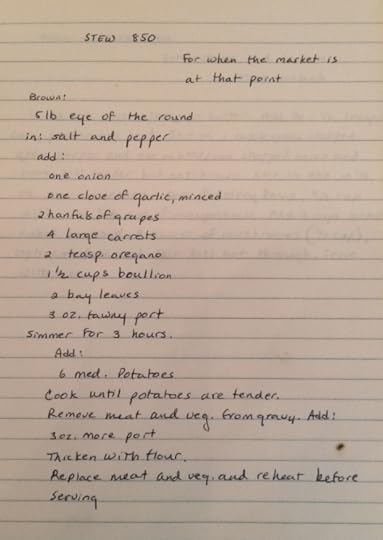 STEW 850
For when the market is
at that point
Brown:
5lb eye of the round
in: salt and pepper
add:
one onion
one clove of garlic, minced
2 hanfuls of grapes
4 large carrots
2 teasp. oregano
1 1/2 cups boullion
2 bay leaves
3 oz. tawny port
Simmer for 3 hours.
Add:
6 med. Potatoes
Cook until potatoes are tender.
Remove meat and veg. from gravy. Add:
3oz. more port
Thicken with flour.
Replace meat and veg. and reheat before
serving